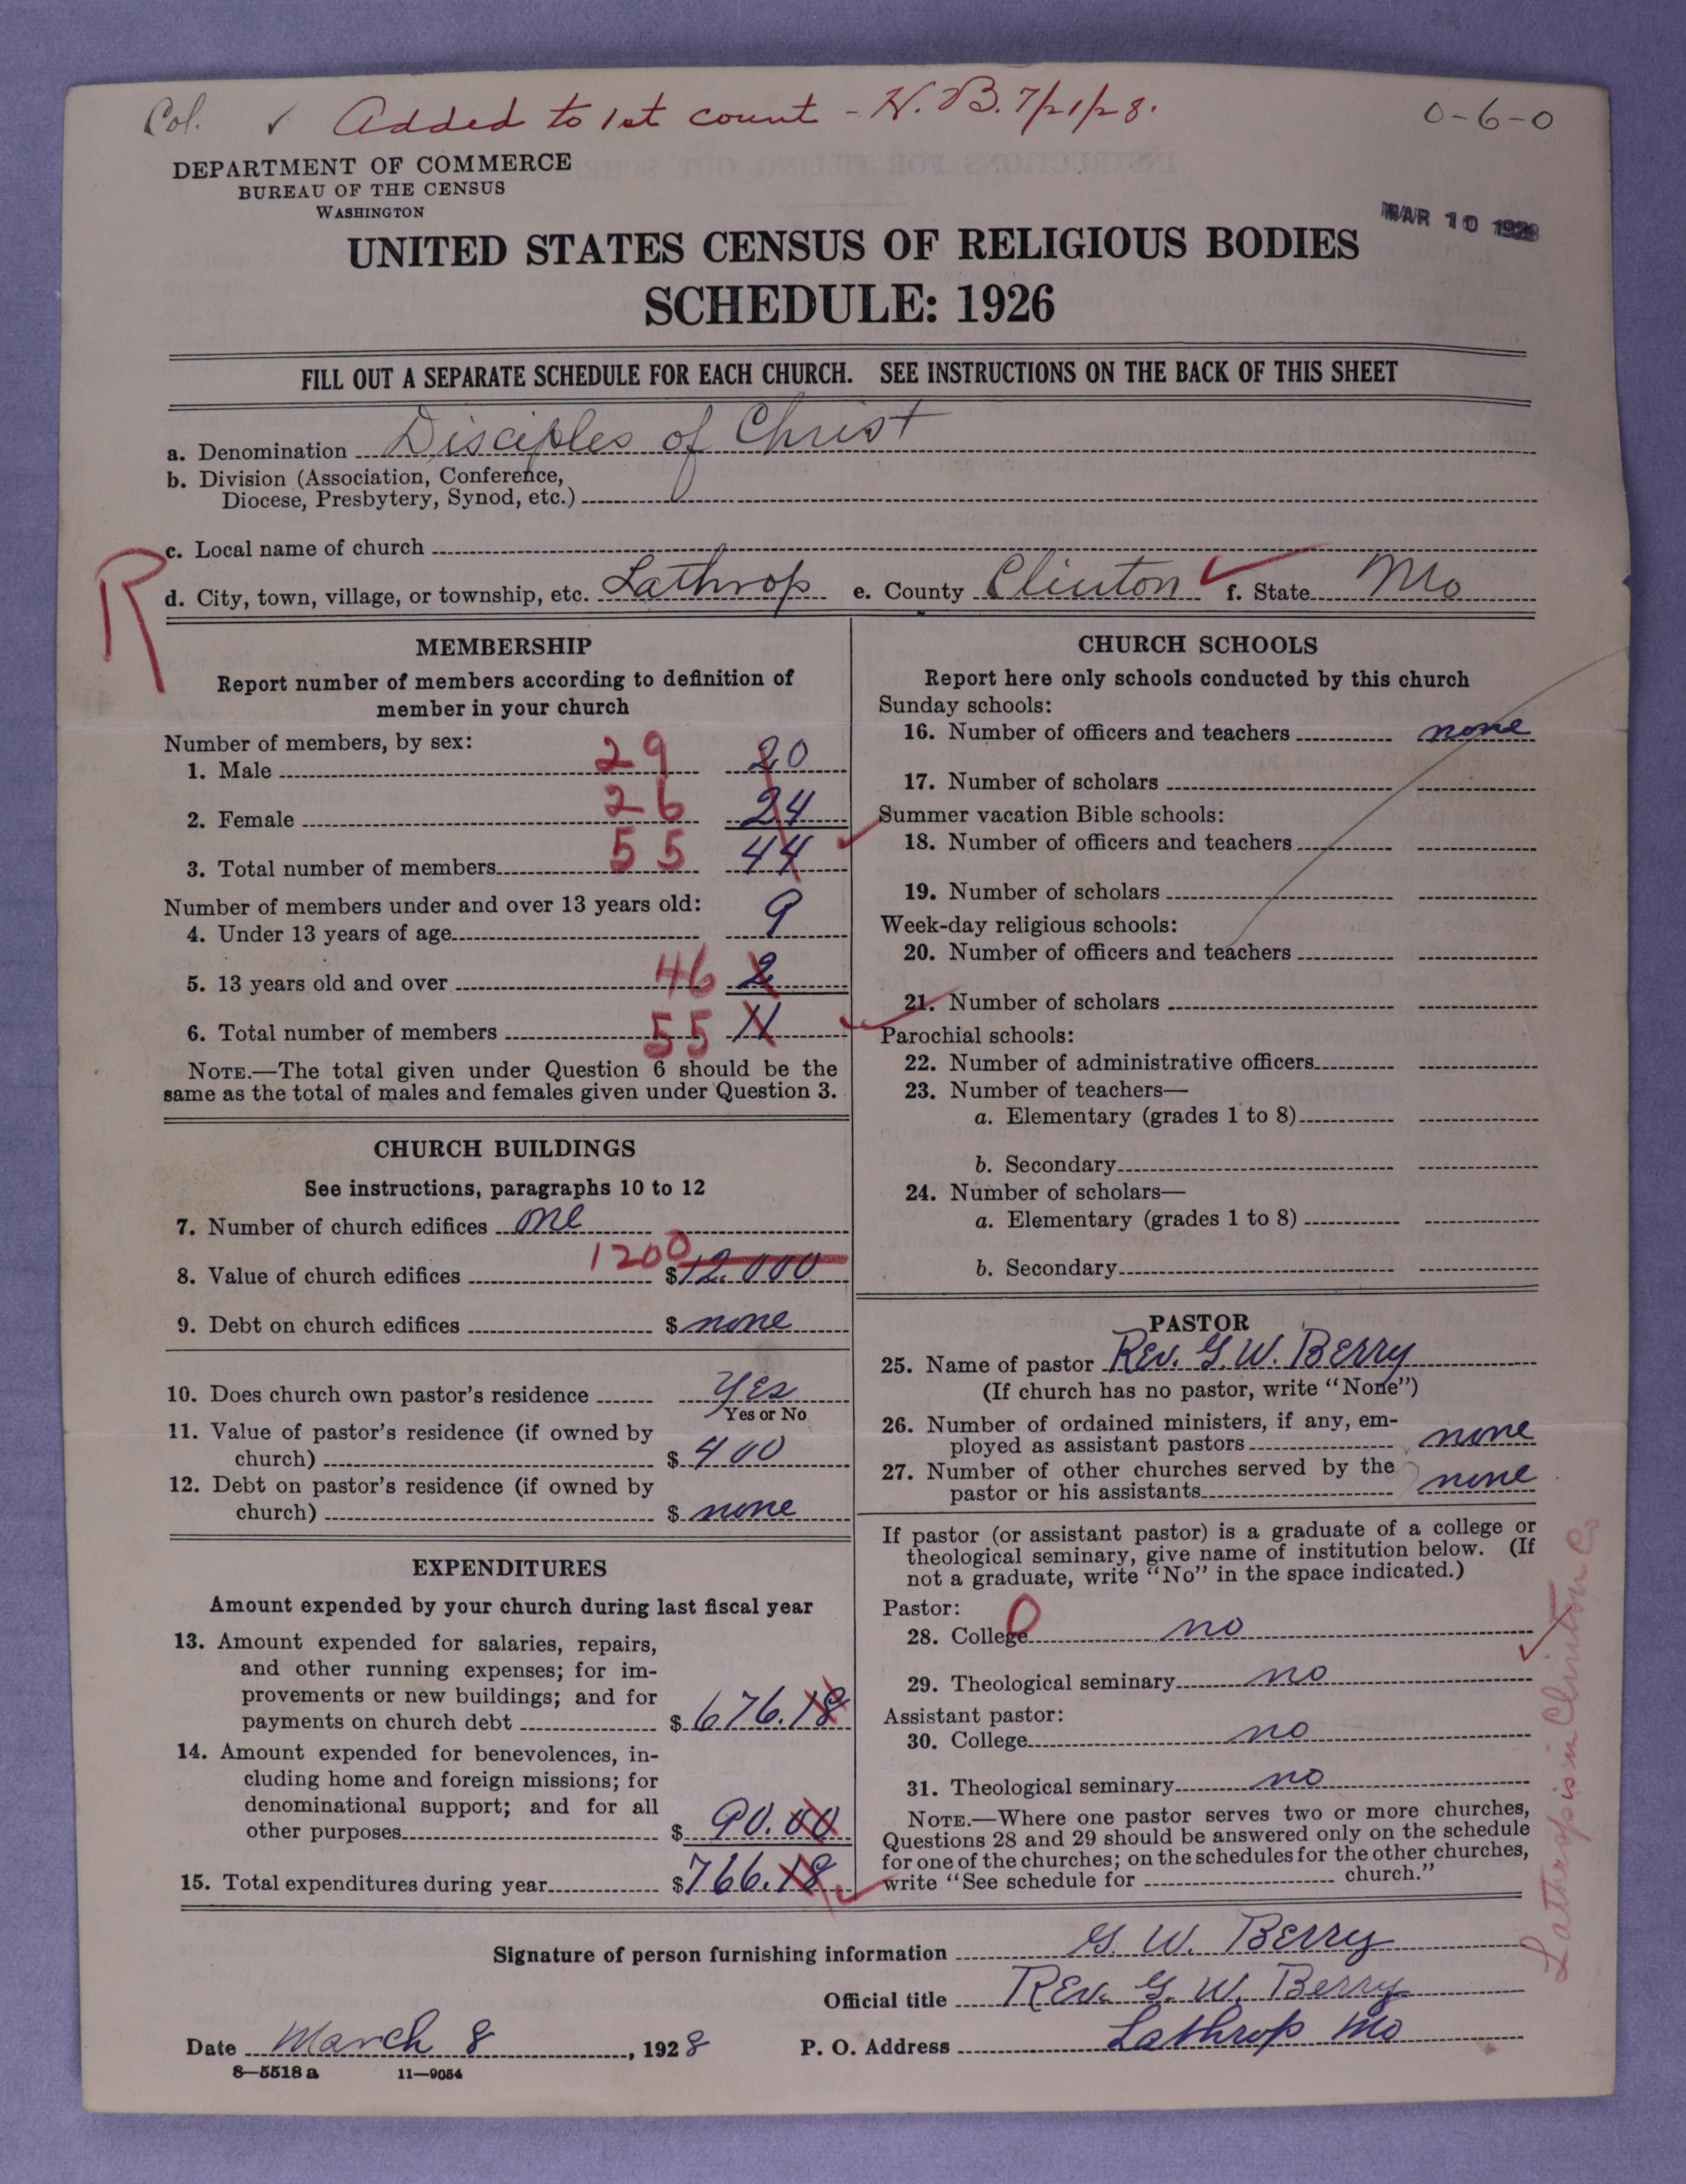 Col. ✓ Added to 1st count - H. B. 7/21/28. 0-6-0
DEPARTMENT OF COMMERCE
BUREAU OF THE CENSUS
WASHINGTON
MAR 10 1928
UNITED STATES CENSUS OF RELIGIOUS BODIES
SCHEDULE: 1926
FILL OUT A SEPARATE SCHEDULE FOR EACH CHURCH. SEE INSTRUCTIONS ON THE BACK OF THIS SHEET
a. Denomination Disciples of Christ
b. Division (Association, Conference,
Diocese, Presbytery, Synod, etc.)
c. Local name of church
R
d. City, town, village, or township, etc. Lathrop e. County Clinton ✓ f. State Mo
MEMBERSHIP
Report number of members according to definition of
member in your church
Number of members, by sex:
1. Male 29 20
2. Female 26 24
3. Total number of members 55 44
Number of members under and over 13 years old:
4. Under 13 years of age 9
5. 13 years old and over 46 2
6. Total number of members 55 11
NOTE.—The total given under Question 6 should be the
same as the total of males and females given under Question 3.
CHURCH BUILDINGS
See instructions, paragraphs 10 to 12
7. Number of church edifices one
8. Value of church edifices 1200 $12.000
9. Debt on church edifices $ none
10. Does church own pastor's residence Yes
Yes or No
11. Value of pastor's residence (if owned by
church) $ 400
12. Debt on pastor's residence (if owned by
church) $ none
EXPENDITURES
Amount expended by your church during last fiscal year
13. Amount expended for salaries, repairs,
and other running expenses; for im-
provements or new buildings; and for
payments on church debt $ 676.18
14. Amount expended for benevolences, in-
cluding home and foreign missions; for
denominational support; and for all
other purposes $ 90.00
15. Total expenditures during year $766.18
CHURCH SCHOOLS
Report here only schools conducted by this church
Sunday schools:
16. Number of officers and teachers none
17. Number of scholars
Summer vacation Bible schools:
18. Number of officers and teachers
19. Number of scholars
Week-day religious schools:
20. Number of officers and teachers
21. Number of scholars
Parochial schools:
22. Number of administrative officers
23. Number of teachers—
a. Elementary (grades 1 to 8)
b. Secondary
24. Number of scholars—
a. Elementary (grades 1 to 8)
b. Secondary
PASTOR
25. Name of pastor Rev. G. W. Berry
(If church has no pastor, write "None")
26. Number of ordained ministers, if any, em-
ployed as assistant pastors none
27. Number of other churches served by the
pastor or his assistants none
If pastor (or assistant pastor) is a graduate of a college or
theological seminary, give name of institution below. (If
not a graduate, write "No" in the space indicated.)
Pastor:
28. College 0 no
29. Theological seminary no
Assistant pastor:
30. College no
31. Theological seminary no
NOTE.—Where one pastor serves two or more churches,
Questions 28 and 29 should be answered only on the schedule
for one of the churches; on the schedules for the other churches,
write "See schedule for church."
Lathrop is in Clinton Co
Signature of person furnishing information G. W. Berry
Official title Rev. G. W. Berry
Date March 8, 1928 P. O. Address Lathrop Mo
8—5518 a 11—9054